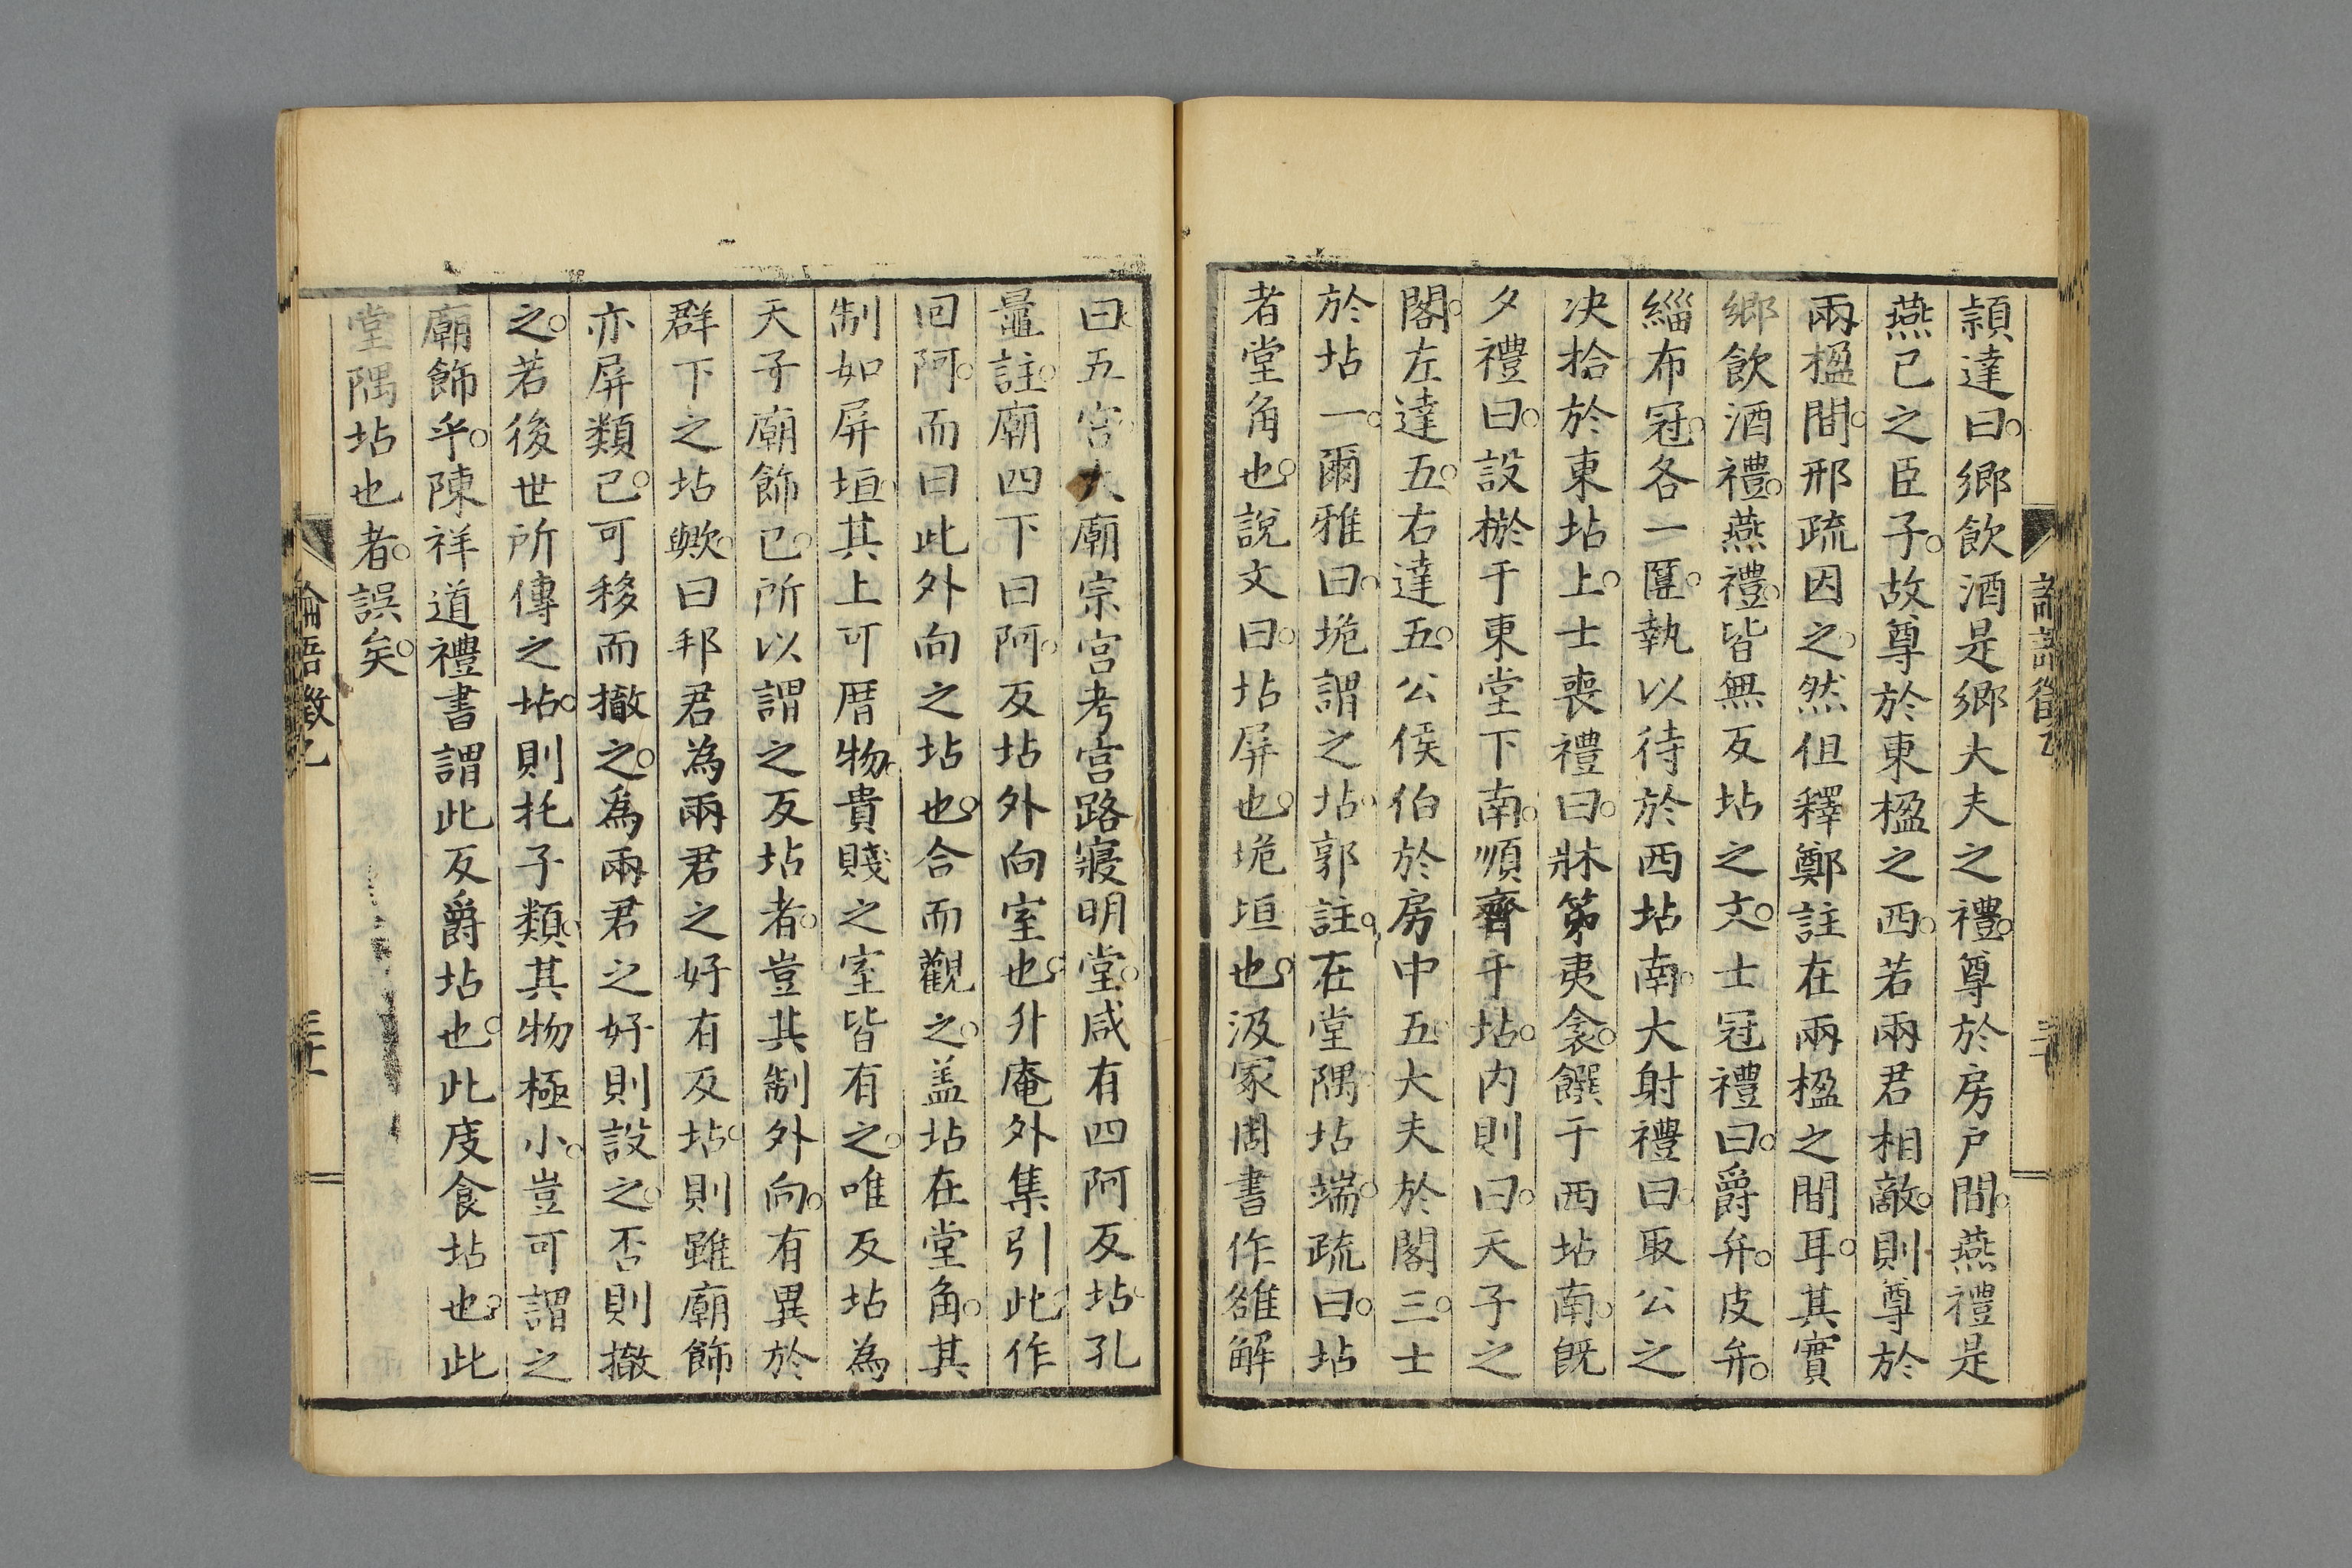 穎達曰鄉飲酒是鄉大夫之禮尊於房戶間燕禮是
燕己之臣子故尊於東楹之西若兩君相敵則尊於
兩楹間邢疏因之然但釋鄭註在兩楹之間耳其實
鄉飲酒禮燕禮皆無反坫之文士冠禮曰爵弁皮弁
緇布冠各一匴執以待於西坫南大射禮曰取公之
决拾於東坫上士喪禮曰牀第夷衾饌于西坫南旣
夕禮曰設棜于東堂下南順齊于坫內則曰天子之
閣左達五右達五公侯伯於房中五大夫於閣三士
於坫一爾雅曰垝謂之坫郭註在堂隅坫端疏曰坫
者堂角也說文曰坫屏也垝垣也汲冢周書作雒解
曰五宮大廟宗宮考宮路寢明堂咸有四阿反坫孔
鼂註廟四下曰阿反坫外向室也升庵外集引此作
回阿而曰此外向之坫也合而觀之盖坫在堂角其
制如屏垣其上可厝物貴賤之室皆有之唯反坫為
天子廟飾已所以謂之反坫者豈其制外向有異於
群下之坫歟曰邦君為兩君之好有反坫則雖廟飾
亦屏類已可移而撤之為兩君之好則設之否則撤
之若後世所傳之坫則托子類其物極小豈可謂之
廟飾乎陳祥道禮書謂此反爵坫也此庋食坫也此
堂隅坫也者誤矣
論語徵乙